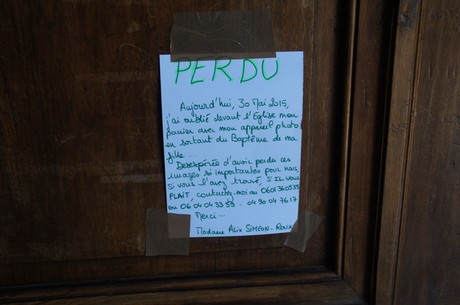 PERDU
Aujourd'hui, 30 Mai 2015,
j'ai oublié devant l'Eglise mon
panier avec mon appareil photo
en sortant du Baptême de ma
fille...
Desespérée d'avoir perdu ces
images si importantes pour nous,
si vous l'avez trouvé, S'IL vous
PLAIT, contactez-moi au
ou 06 04 04 33 59 .
Merci...
Madame Alix SIMEON-ROUX